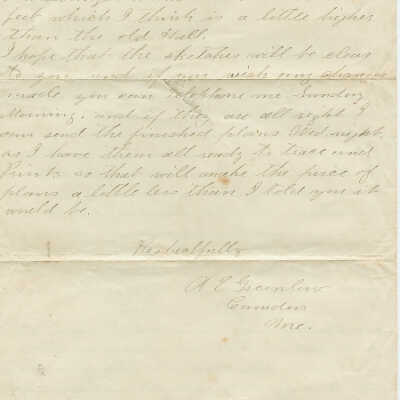 feet which I think is a little higher
than the old Hall.
I hope that the sketches will be clear
to you and if you wish any changes
made you can telephone me Sunday
Morning, and if they are all right I
can send the finished plans Wed. night
as I have them all ready to trace and
Print, so that will make the price of
plans a little less than I told you it
would be.
Respectfully
Camden
Me.